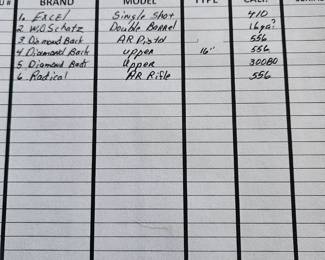 U # BRAND MODEL TYPE CALI.
1. Excel Single Shot 410
2. W.O Schatz Double Barrel 16 ga?
3 Diamond Back AR Pistol 556
4 Diamond Back upper 16" 556
5 Diamond Back Upper 300BO
6 Radical AR Rifle 556